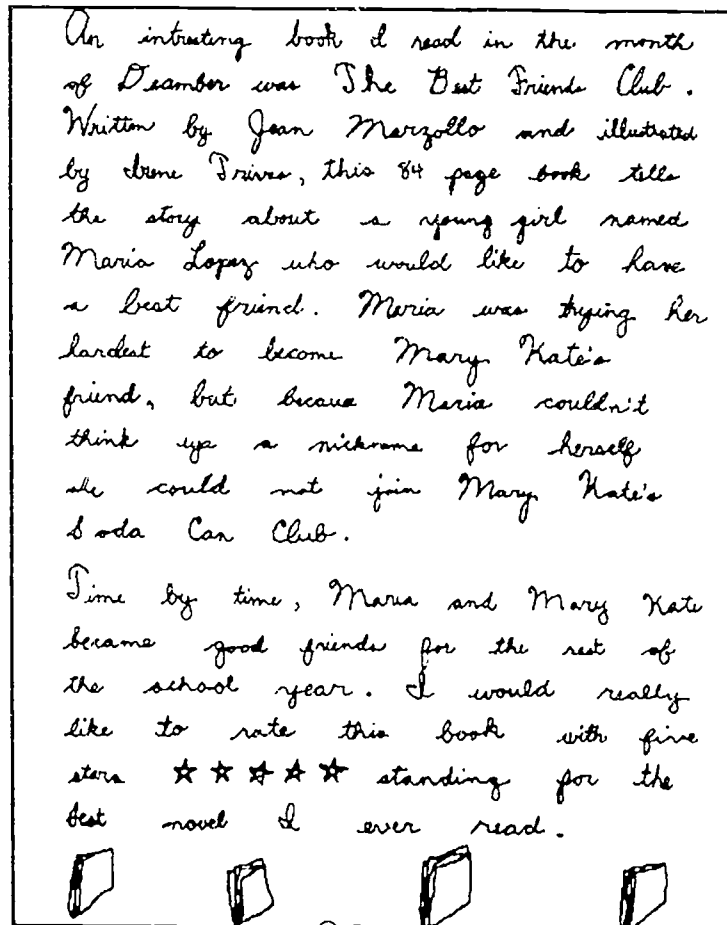 An intresting book I read in the month
of Deamber was The Best Friends Club.
Written by Jean Marzollo and illustrated
by Irene Trivas, this 84 page book tells
the story about a young girl named
Maria Lopez who would like to have
a best friend. Maria was trying her
hardest to become Mary Kate's
friend, but becaue Maria couldn't
think up a nickname for herself
she could not join Mary Kate's
Soda Can Club.
Time by time, Maria and Mary Kate
became good friends for the rest of
the school year. I would really
like to rate this book with five
stars ☆☆☆☆☆ standing for the
best novel I ever read.